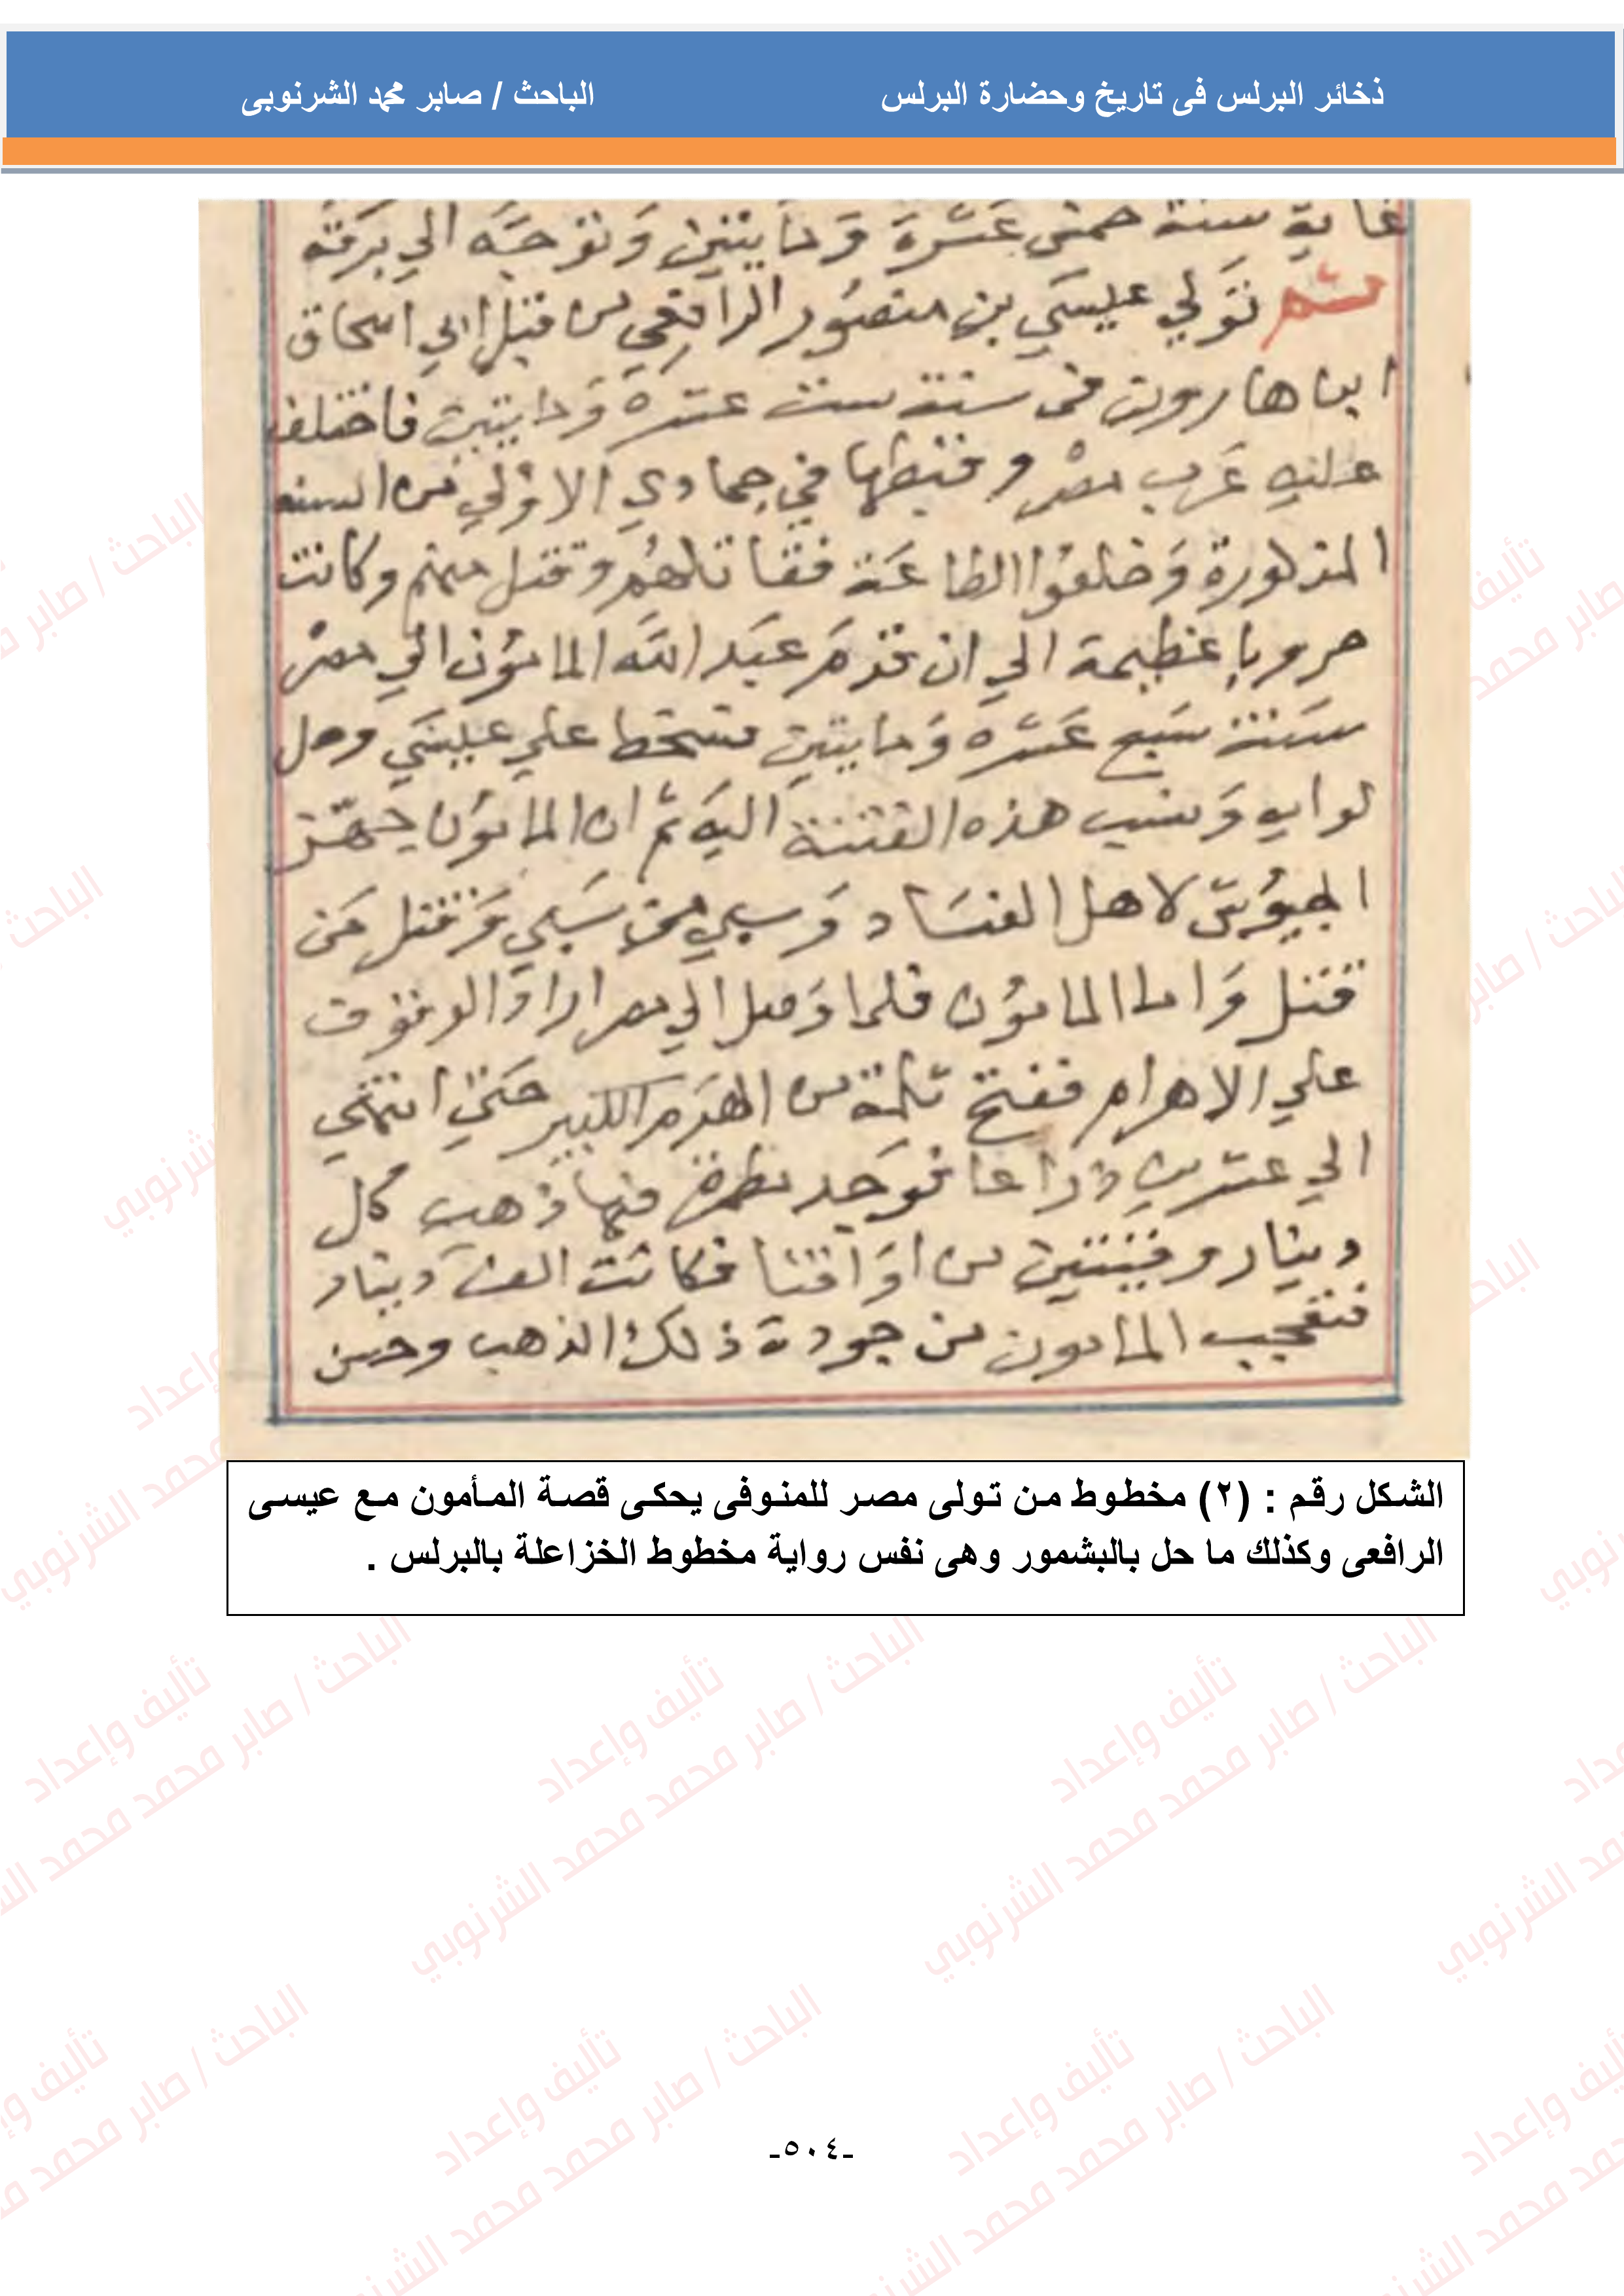 ذخائر البرلس فى تاريخ وحضارة البرلس
الباحث / صابر محمد الشرنوبى
غاية سنة خمس عشرة ومايتين وتوجه الي برقه
ثم تولي عيسي بن منصور الرافعي من قبل ابي اسحاق
ابن هارون في سنة ست عشرة ومايتين فاختلف
عليه عرب مصر وقبطها في جمادي الاولي من السنه
المذكورة وخلعوا الطاعة فقاتلهم وقتل منهم وكانت
حروبا عظيمة الي ان قدم عبد الله المامون الي مصر
سنة سبع عشره ومايتين فسخط علي عيسي وحل
لوايه ونسب هذه الفتنة اليه ثم ان المامون جهز
الجيوش لاهل الفساد وسبي من سبي وقتل من
قتل واما المامون فلما وصل الي مصر اراد الوقوف
علي الاهرام ففتح ثلمة من الهرم الكبير حتي انتهي
الي عشرين ذراعا فوجد مطمرة فيها ذهب كل
دينار وقيتين من اواقنا فكانت الف دينار
فتعجب المامون من جودة ذلك الذهب وحسن
الشكل رقم : (٢) مخطوط من تولى مصر للمنوفى يحكى قصة المأمون مع عيسى
الرافعى وكذلك ما حل بالبشمور وهى نفس رواية مخطوط الخزاعلة بالبرلس .
تأليف وإعداد
الباحث / صابر محمد محمد الشرنوبي
-٥٠٤-